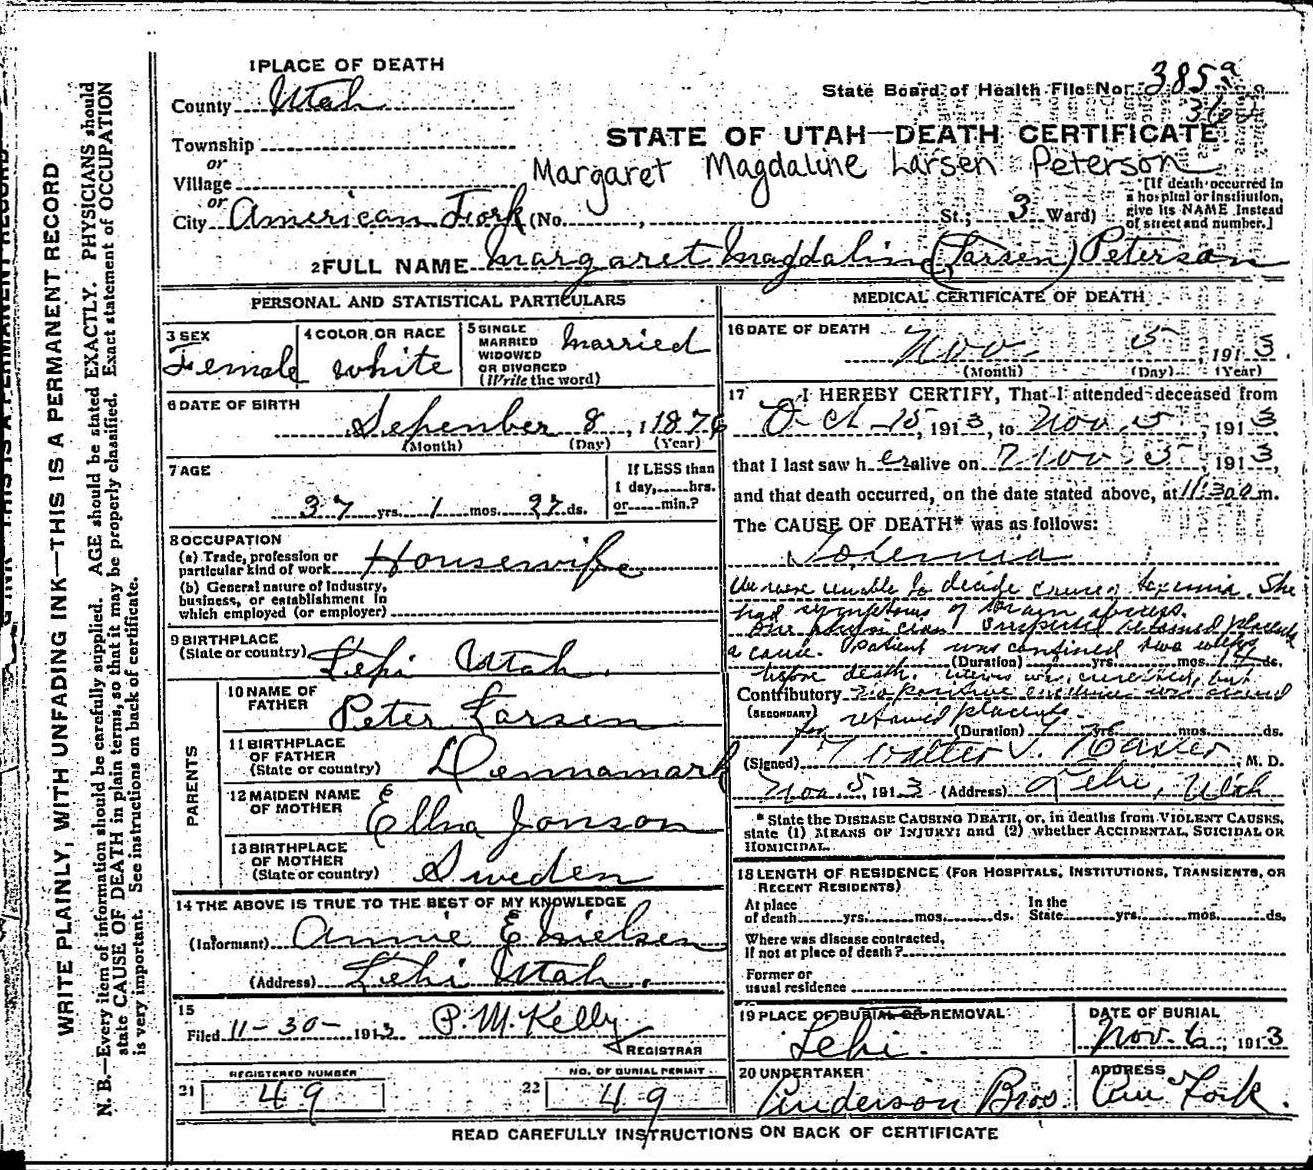 1 PLACE OF DEATH
County Utah
State Board of Health File No. 385
Township
or
Village
or
City American Fork (No. , St.; 3 Ward)
STATE OF UTAH—DEATH CERTIFICATE
Margaret Magdaline Larsen Peterson
*[If death occurred in
a hospital or institution,
give its NAME instead
of street and number.]
2 FULL NAME Margaret Magdaline (Larsen) Peterson
PERSONAL AND STATISTICAL PARTICULARS
3 SEX
Female
4 COLOR OR RACE
white
5 SINGLE
MARRIED
WIDOWED
OR DIVORCED
(Write the word)
Married
6 DATE OF BIRTH
Sepember 8, 1876
(Month) (Day) (Year)
7 AGE
37 yrs. 1 mos. 27 ds.
If LESS than
1 day, hrs.
or min.?
8 OCCUPATION
(a) Trade, profession or
particular kind of work Housewife
(b) General nature of industry,
business, or establishment in
which employed (or employer)
9 BIRTHPLACE
(State or country) Lehi Utah.
PARENTS
10 NAME OF
FATHER
Peter Larsen
11 BIRTHPLACE
OF FATHER
(State or country) Dennamark
12 MAIDEN NAME
OF MOTHER
Ellna Jonson
13 BIRTHPLACE
OF MOTHER
(State or country) Sweden
14 THE ABOVE IS TRUE TO THE BEST OF MY KNOWLEDGE
(Informant) Annie E Nielsen
(Address) Lehi Utah.
15
Filed 11-30-1913 P. M. Kelly
REGISTRAR
REGISTERED NUMBER
21 49
NO. OF BURIAL PERMIT
22 49
MEDICAL CERTIFICATE OF DEATH
16 DATE OF DEATH
Nov. 5, 1913
(Month) (Day) (Year)
17 I HEREBY CERTIFY, That I attended deceased from
Oct-15, 1913, to Nov. 5, 1913
that I last saw her alive on Nov. 5, 1913,
and that death occurred, on the date stated above, at 11:30 m.
The CAUSE OF DEATH* was as follows:
Toxemia
We were unable to decide cause of toxemia. She
had symptoms of brain abscess.
One physician suspected retained placenta
a cause. Patient was confined two weeks
(Duration) yrs. mos. ds.
before death. uterus was curetted, but
Contributory no positive evidence was found
(SECONDARY)
for retained placenta
(Duration) yrs. mos. ds.
(Signed) Walter M. D.
Nov. 5, 1913 (Address) Lehi, Utah
* State the DISEASE CAUSING DEATH, or, in deaths from VIOLENT CAUSES,
state (1) MEANS OF INJURY; and (2) whether ACCIDENTAL, SUICIDAL OR
HOMICIDAL.
18 LENGTH OF RESIDENCE (FOR HOSPITALS, INSTITUTIONS, TRANSIENTS, OR
RECENT RESIDENTS)
At place
of death yrs. mos. ds.
In the
State yrs. mos. ds.
Where was disease contracted,
If not at place of death?
Former or
usual residence
19 PLACE OF BURIAL OR REMOVAL
Lehi.
DATE OF BURIAL
Nov. 6, 1913
20 UNDERTAKER
Anderson Bros.
ADDRESS
Am Fork.
READ CAREFULLY INSTRUCTIONS ON BACK OF CERTIFICATE
WRITE PLAINLY, WITH UNFADING INK—THIS IS A PERMANENT RECORD
N. B.—Every item of information should be carefully supplied. AGE should be stated EXACTLY. PHYSICIANS should
state CAUSE OF DEATH in plain terms, so that it may be properly classified. Exact statement of OCCUPATION
is very important. See instructions on back of certificate.